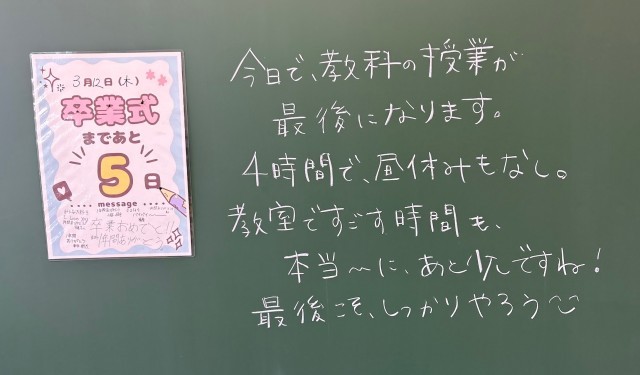 3月12日(木)
卒業式
まであと
5日
message
卒業おめでとう!!
今日で、教科の授業が
最後になります。
4時間で、昼休みもなし。
教室ですごす時間も、
本当〜に、あと少しですね!
最後こそ、しっかりやろう